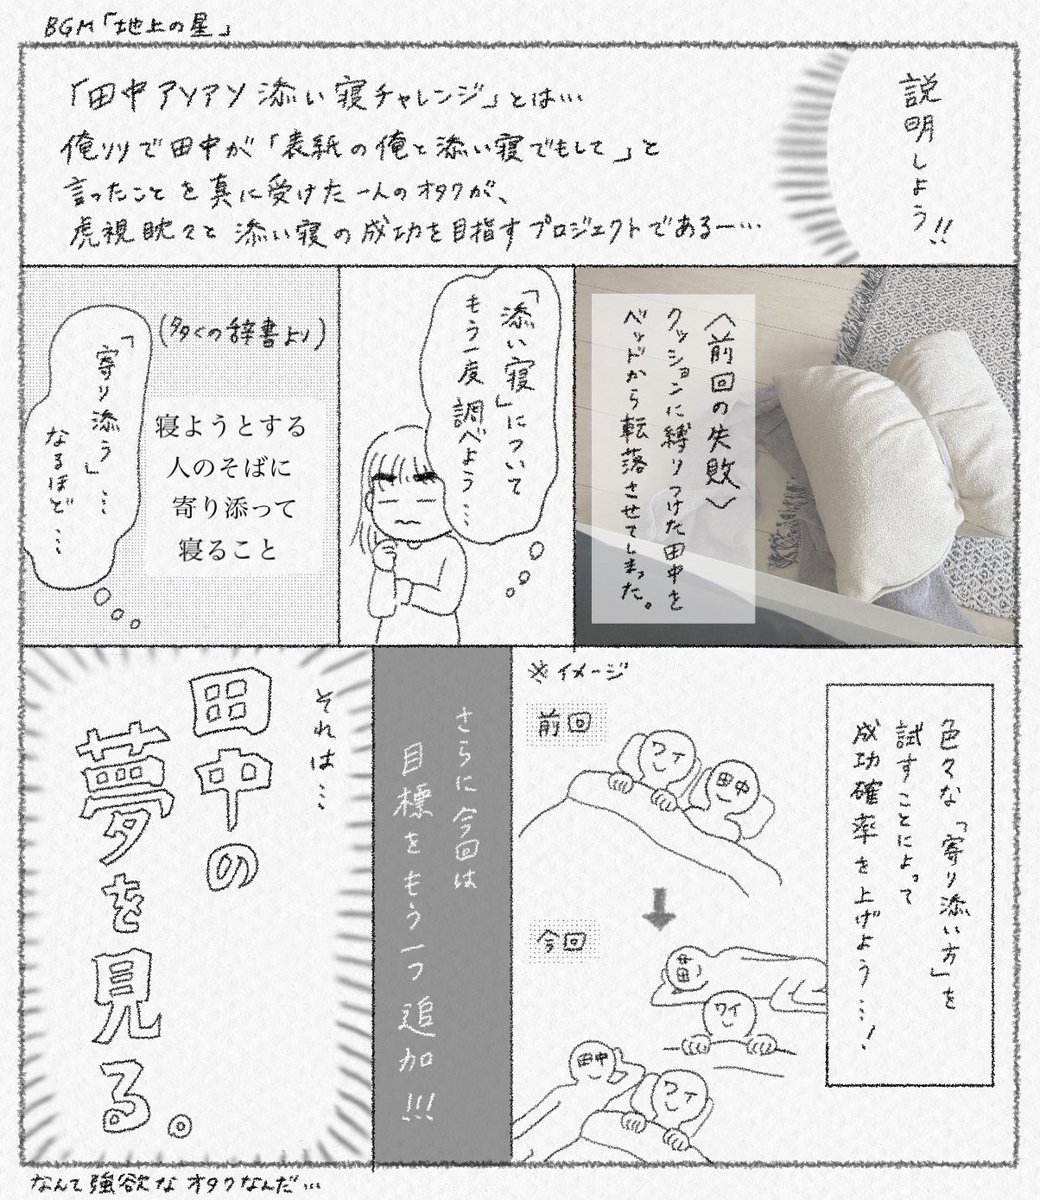 BGM「地上の星」
説明しよう!!
「田中アソアソ添い寝チャレンジ」とは…
俺リリで田中が「表紙の俺と添い寝でもして」と
言ったことを真に受けた一人のオタクが、
虎視眈々と添い寝の成功を目指すプロジェクトであるー…
〈前回の失敗〉
クッションに縛りつけた田中を
ベッドから転落させてしまった。
「添い寝」について
もう一度調べよう…
(多くの辞書より)
寝ようとする
人のそばに
寄り添って
寝ること
「寄り添う」…
なるほど…
色々な「寄り添い方」を
試すことによって
成功確率を上げよう…!
※イメージ
前回
ワイ
田中
今回
田中
ワイ
田中
ワイ
さらに今回は
目標をもう一つ追加!!!
それは…
田中の
夢を見る。
なんて強欲なオタクなんだ…